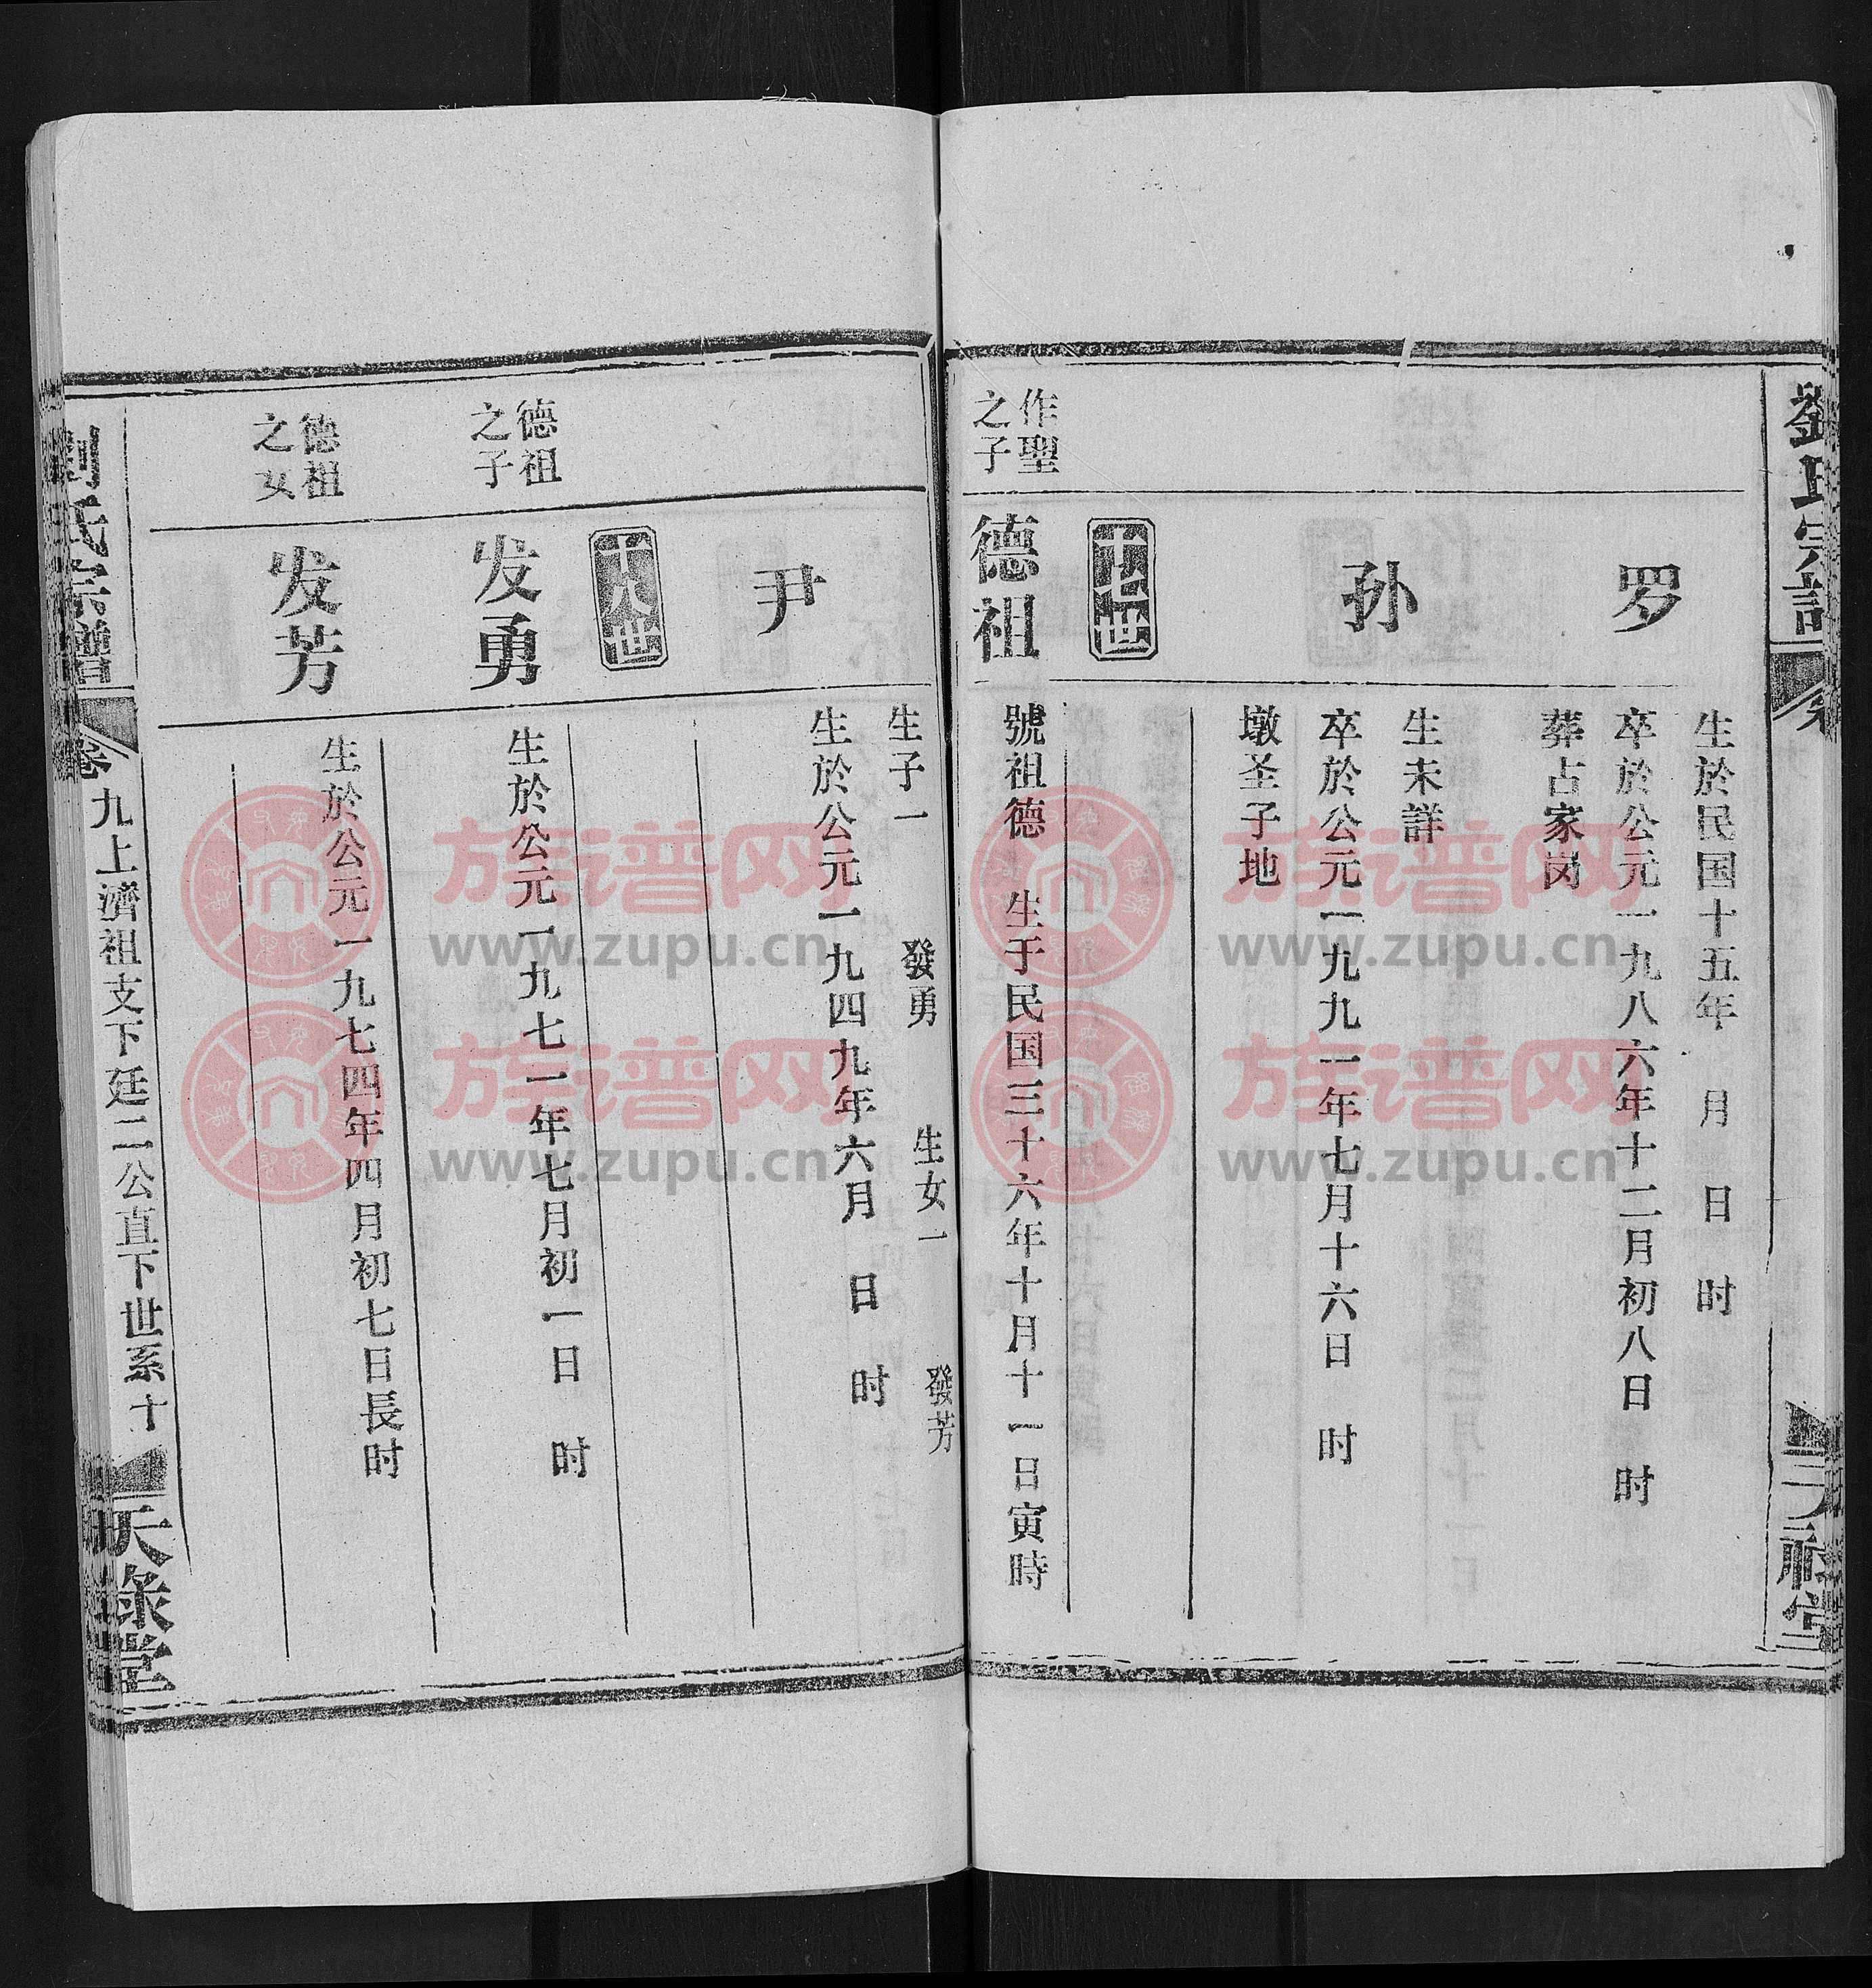 劉氏宗譜
卷
天祿堂
罗
生於民国十五年 月 日 时
卒於公元一九八六年十二月初八日 时
葬占家岗
孙
生未詳
卒於公元一九九一年七月十六日 时
墩圣子地
十七世
作聖
之子
德祖
號祖德 生于民国三十六年十月十一日寅時
生子一 發勇 生女一 發芳
尹
生於公元一九四九年六月 日 时
十八世
德祖
之子
发勇
生於公元一九七一年七月初一日 时
德祖
之女
发芳
生於公元一九七四年四月初七日長时
劉氏宗譜
卷九上濟祖支下廷二公直下世系十
天祿堂
族谱网
www.zupu.cn
族谱网
www.zupu.cn
族谱网
www.zupu.cn
族谱网
www.zupu.cn